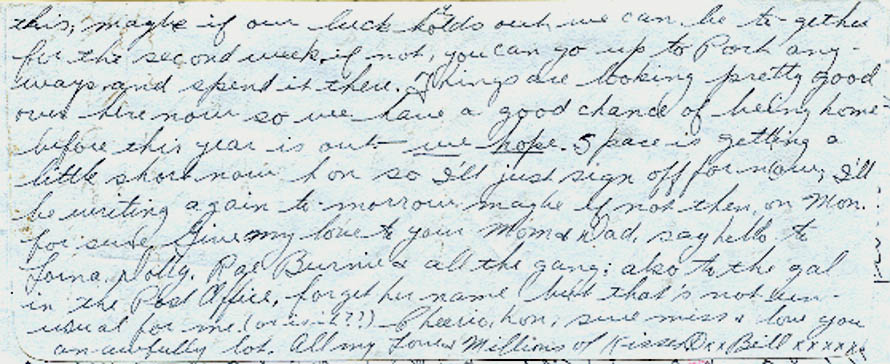 this, maybe if our luck holds out we can be to-gether
for the second week, if not, you can go up to Poch any-
ways and spend it there. Things are looking pretty good
over here now so we have a good chance of being home
before this year is out - we hope. Space is getting a
little short now hon so I'll just sign off for now, I'll
be writing again to-morrow maybe if not then, on Mon.
for sure. Give my love to your Mom & Dad, say hello to
Lorna, Dolly, Burnie & all the gang; also to the gal
in the Post Office, forget her name but that's not un-
usual for me. (or is it??) Cheerio, hon, sure miss & love you
an awfully lot. All my Love & Millions of Kisses Bill xxxxxx